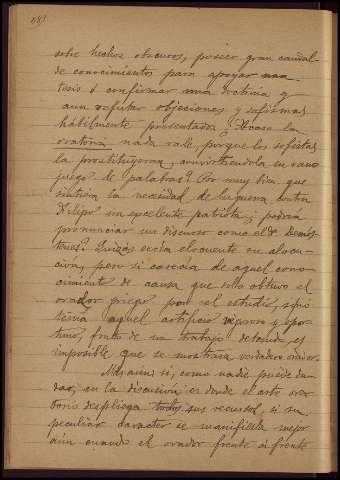 sobre hechos obscuros, poseer gran caudal
de conocimientos para apoyar una
tesis ó confirmar una doctrina y
aun refutar objeciones y sofismas
hábilmente presentados? Acaso la
oratoria nada vale, porque los sofistas
la prostituyeron, convirtiéndola en vano
juego de palabras? Por muy bien que
sintiera la necesidad de la guerra contra
Filipo un excelente patriota, podría
pronunciar un discurso como el de Demós
tenes? Quizás sería elocuente en alocu-
ción, pero si carecía de aquel cono-
cimiento de causa que sólo obtuvo el
orador griego por el estudio, si no
tenía aquel artificio vigoroso y opor-
tuno, fruto de un trabajo detenido, es
imposible que se mostrara verdadero orador.
Mas aun: si, como nadie puede du-
dar, en la discusión es donde el arte ora-
torio despliega todos sus recursos, si su
peculiar caracter se manifiesta mejor
aún cuando el orador frente á frente